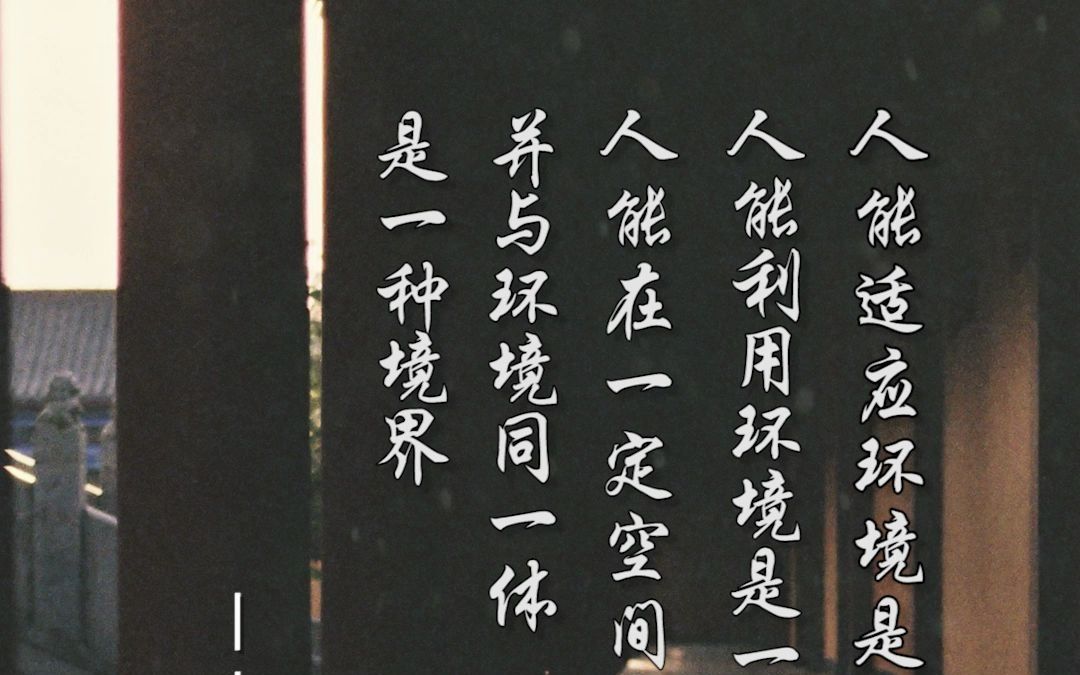 人能适应环境是
人能利用环境是一
人能在一定空间
并与环境同一体
是一种境界